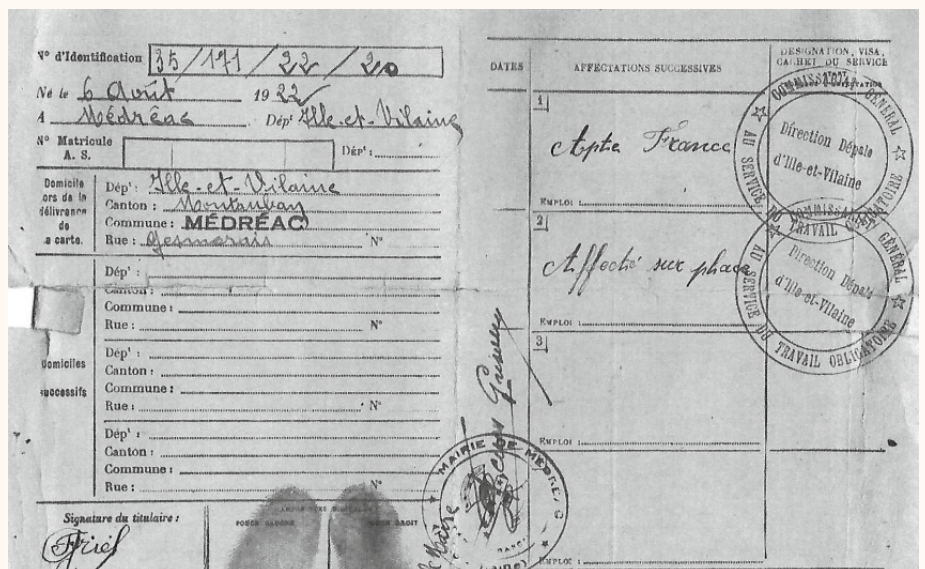 N° d'Identification 35/171/22/20
Né le 6 Août 1922
A Médréac Dépt Ille-et-Vilaine
N° Matricule A. S. Dépt :
Domicile
ors de la
délivrance
de
a carte.
Dépt : Ille-et-Vilaine
Canton : Montauban
Commune : MÉDRÉAC
Rue : N°
Domiciles
successifs
Dépt :
Canton :
Commune :
Rue : N°
Dépt :
Canton :
Commune :
Rue : N°
Dépt :
Canton :
Commune :
Rue : N°
Signature du titulaire :
POUCE GAUCHE
POUCE DROIT
MAIRIE DE MÉDRÉAC
Le Maire
DATES
AFFECTATIONS SUCCESSIVES
DÉSIGNATION, VISA,
CACHET DU SERVICE
1
Apte France
EMPLOI :
2
Affecté sur place
EMPLOI :
3
EMPLOI :
EMPLOI :
COMMISSARIAT GÉNÉRAL
AU SERVICE DU TRAVAIL OBLIGATOIRE
Direction Dépale
d'Ille-et-Vilaine
COMMISSARIAT GÉNÉRAL
AU SERVICE DU TRAVAIL OBLIGATOIRE
Direction Dépale
d'Ille-et-Vilaine